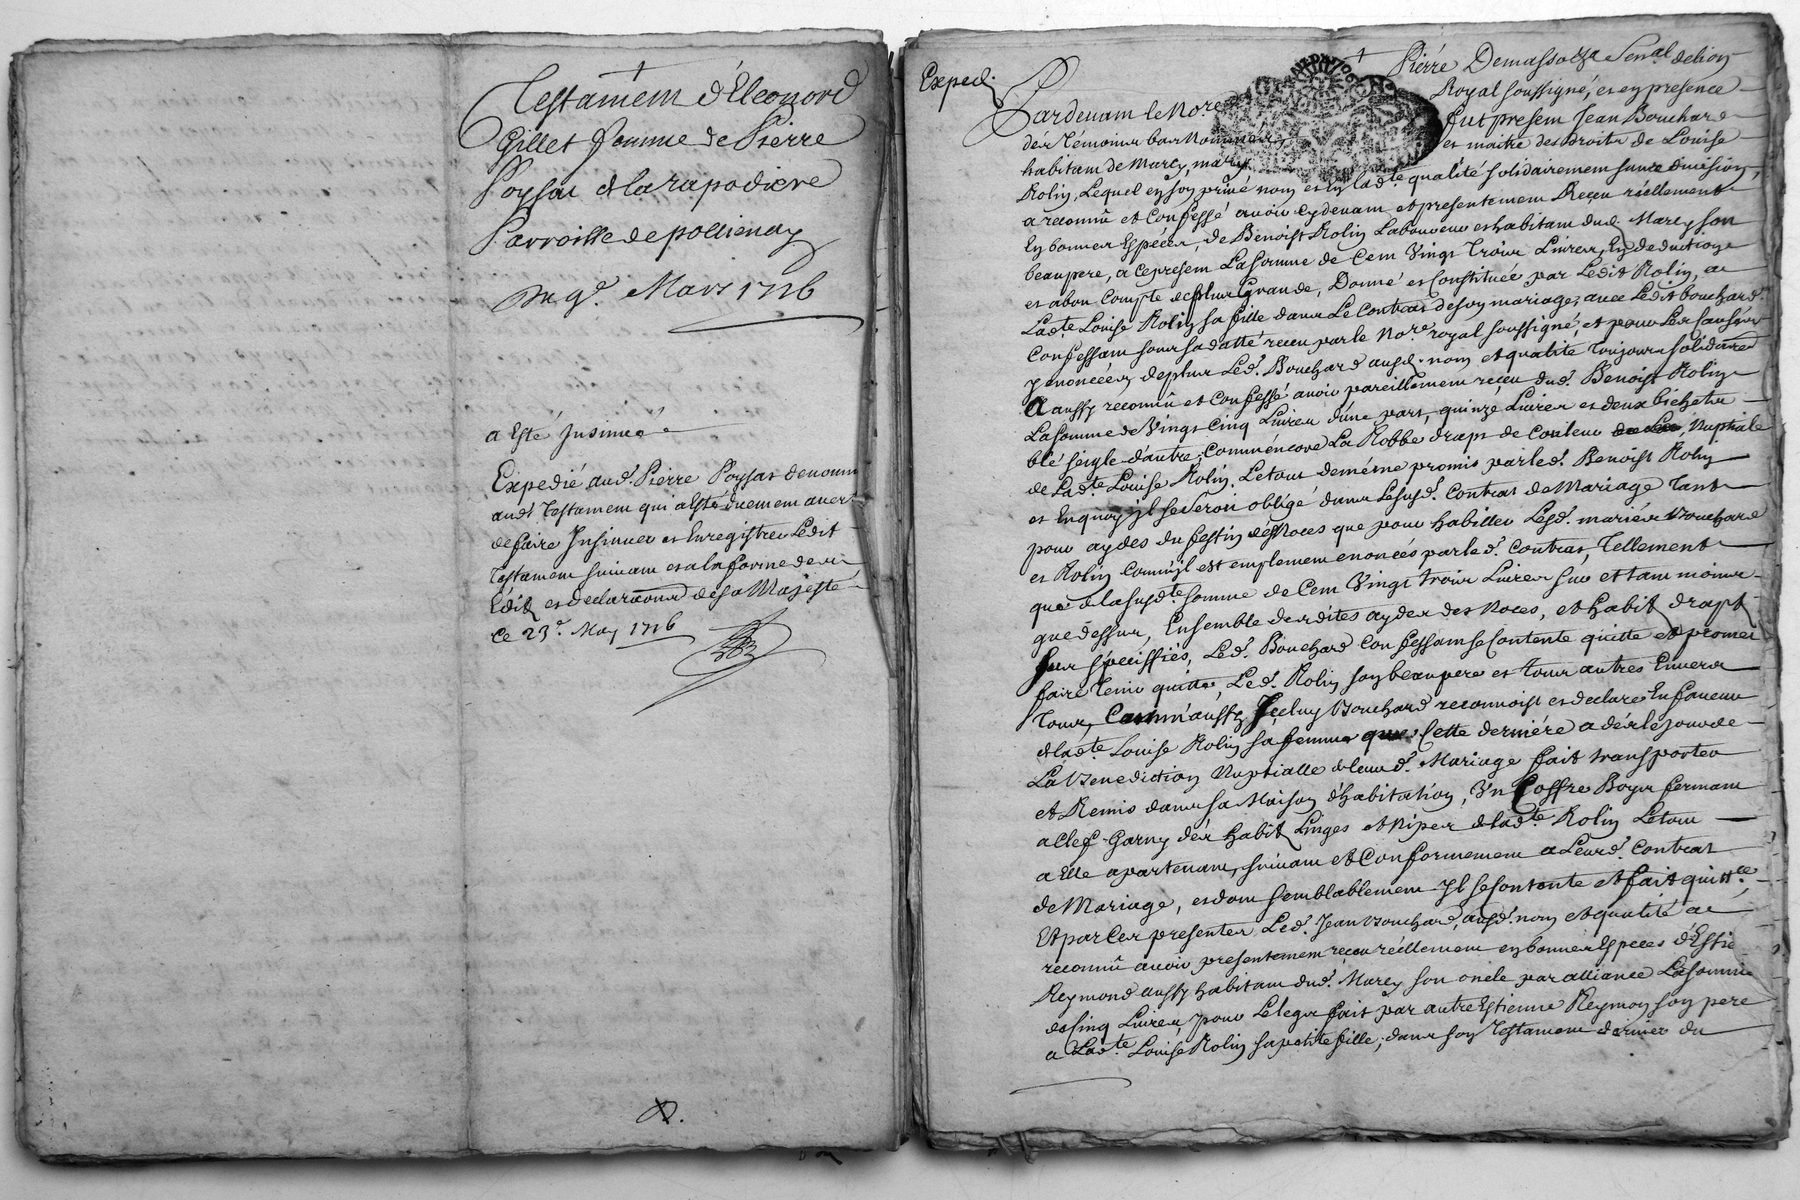 Testament d'Eleonord
Gillet femme de Pierre
Poysat de la rapodiere
Parroisse de pollienay
Du 9e. Mars 1716
a Esté Insinué
Expedié aud. Pierre Poysat denommé
aud. Testament qui a Esté duement averty
de faire Insinuer et Enregistrer Ledit
Testament suivant et a la forme des
Edits et declarations de sa Majesté
Ce 23e. May 1716
Exped.
Pardevant le Nore.
Royal soussigné, et en presence
des Témoins bas Nommés
fut present Jean Bouchard
habitant de Marcy,
et maitre des droits de Louise
Rolin, Lequel en son privé nom et en lad.te qualité solidairement sans division,
a reconnû et Confessé avoir cydevant et presentement Reçu réellement
En bonnes Espéces, de Benoist Rolin Laboureur et habitant dud. Marcy son
beaupere, a ce present La somme de Cent Vingt Trois Livres, En deduction
et a bon Compte de plus Grande, Donné et Constituée par Ledit Rolin, a
Lad.te Louise Rolin sa fille dans Le Contrat de son mariage, avec Ledit bouchard
Confessant sous sa datte receu par le No.re royal soussigné, et pour Les causes
y enoncées, de plus Led. Bouchard aud. nom et qualité toujours solidaire
a aussy reconnû et Confessé avoir pareillement reçeu dud. Benoist Rolin
La somme de Vingt Cinq Livres d'une part, quinze Livres et deux bichets
blé seigle d'autre, Comm'encore La Robbe draps de Couleur Nuptiale
de Lad.te Louise Rolin, Le tout de méme promis par led. Benoist Rolin
et Enquoy jl se seroit obligé dans Le susd. Contrat de Mariage Tant
pour aydes du festin des Noces que pour habiller Lesd. mariés Bouchard
et Rolin comm'il est emplement enoncés par led. Contrat, Tellement
que de la susd.te somme de Cent Vingt trois Livres
que dessus, Ensemble desdites aydes des Noces, et habit drapt
sus spéciffiés, Led. Bouchard Confessant se Contente quitte et promet
faire Tenir quitte, Led. Rolin son beaupere et tous autres Envers
Tous, Comm'aussy Jceluy Bouchard reconnoist et declare En faveur
de lad.te Louise Rolin sa femme que Cette derniére a dés le jour de
La Benediction Nuptialle de leurd. Mariage fait transporter
et Remis dans sa Maison d'habitation, Vn Coffre Boys fermant
a Clef Garny des habit Linges et Nipes de lad.te Rolin Le tout
a Elle apartenant, suivant et Conformement a Leurd. Contrat
de Mariage, et dont semblablement Jl se Contente et fait quitt.ce,
Et par Ces presentes Led. Jean Bouchard, ausd. nom et qualité a
reconnû avoir presentement reçeu réellement en bonnes Especes d'Estienne
Reymond aussy habitant dud. Marcy son oncle par alliance La somme
de Cinq Livres, pour Le legat fait par autre Estienne Reymon son pere
a Lad.te Louise Rolin sa petite fille, dans son Testament dernier du